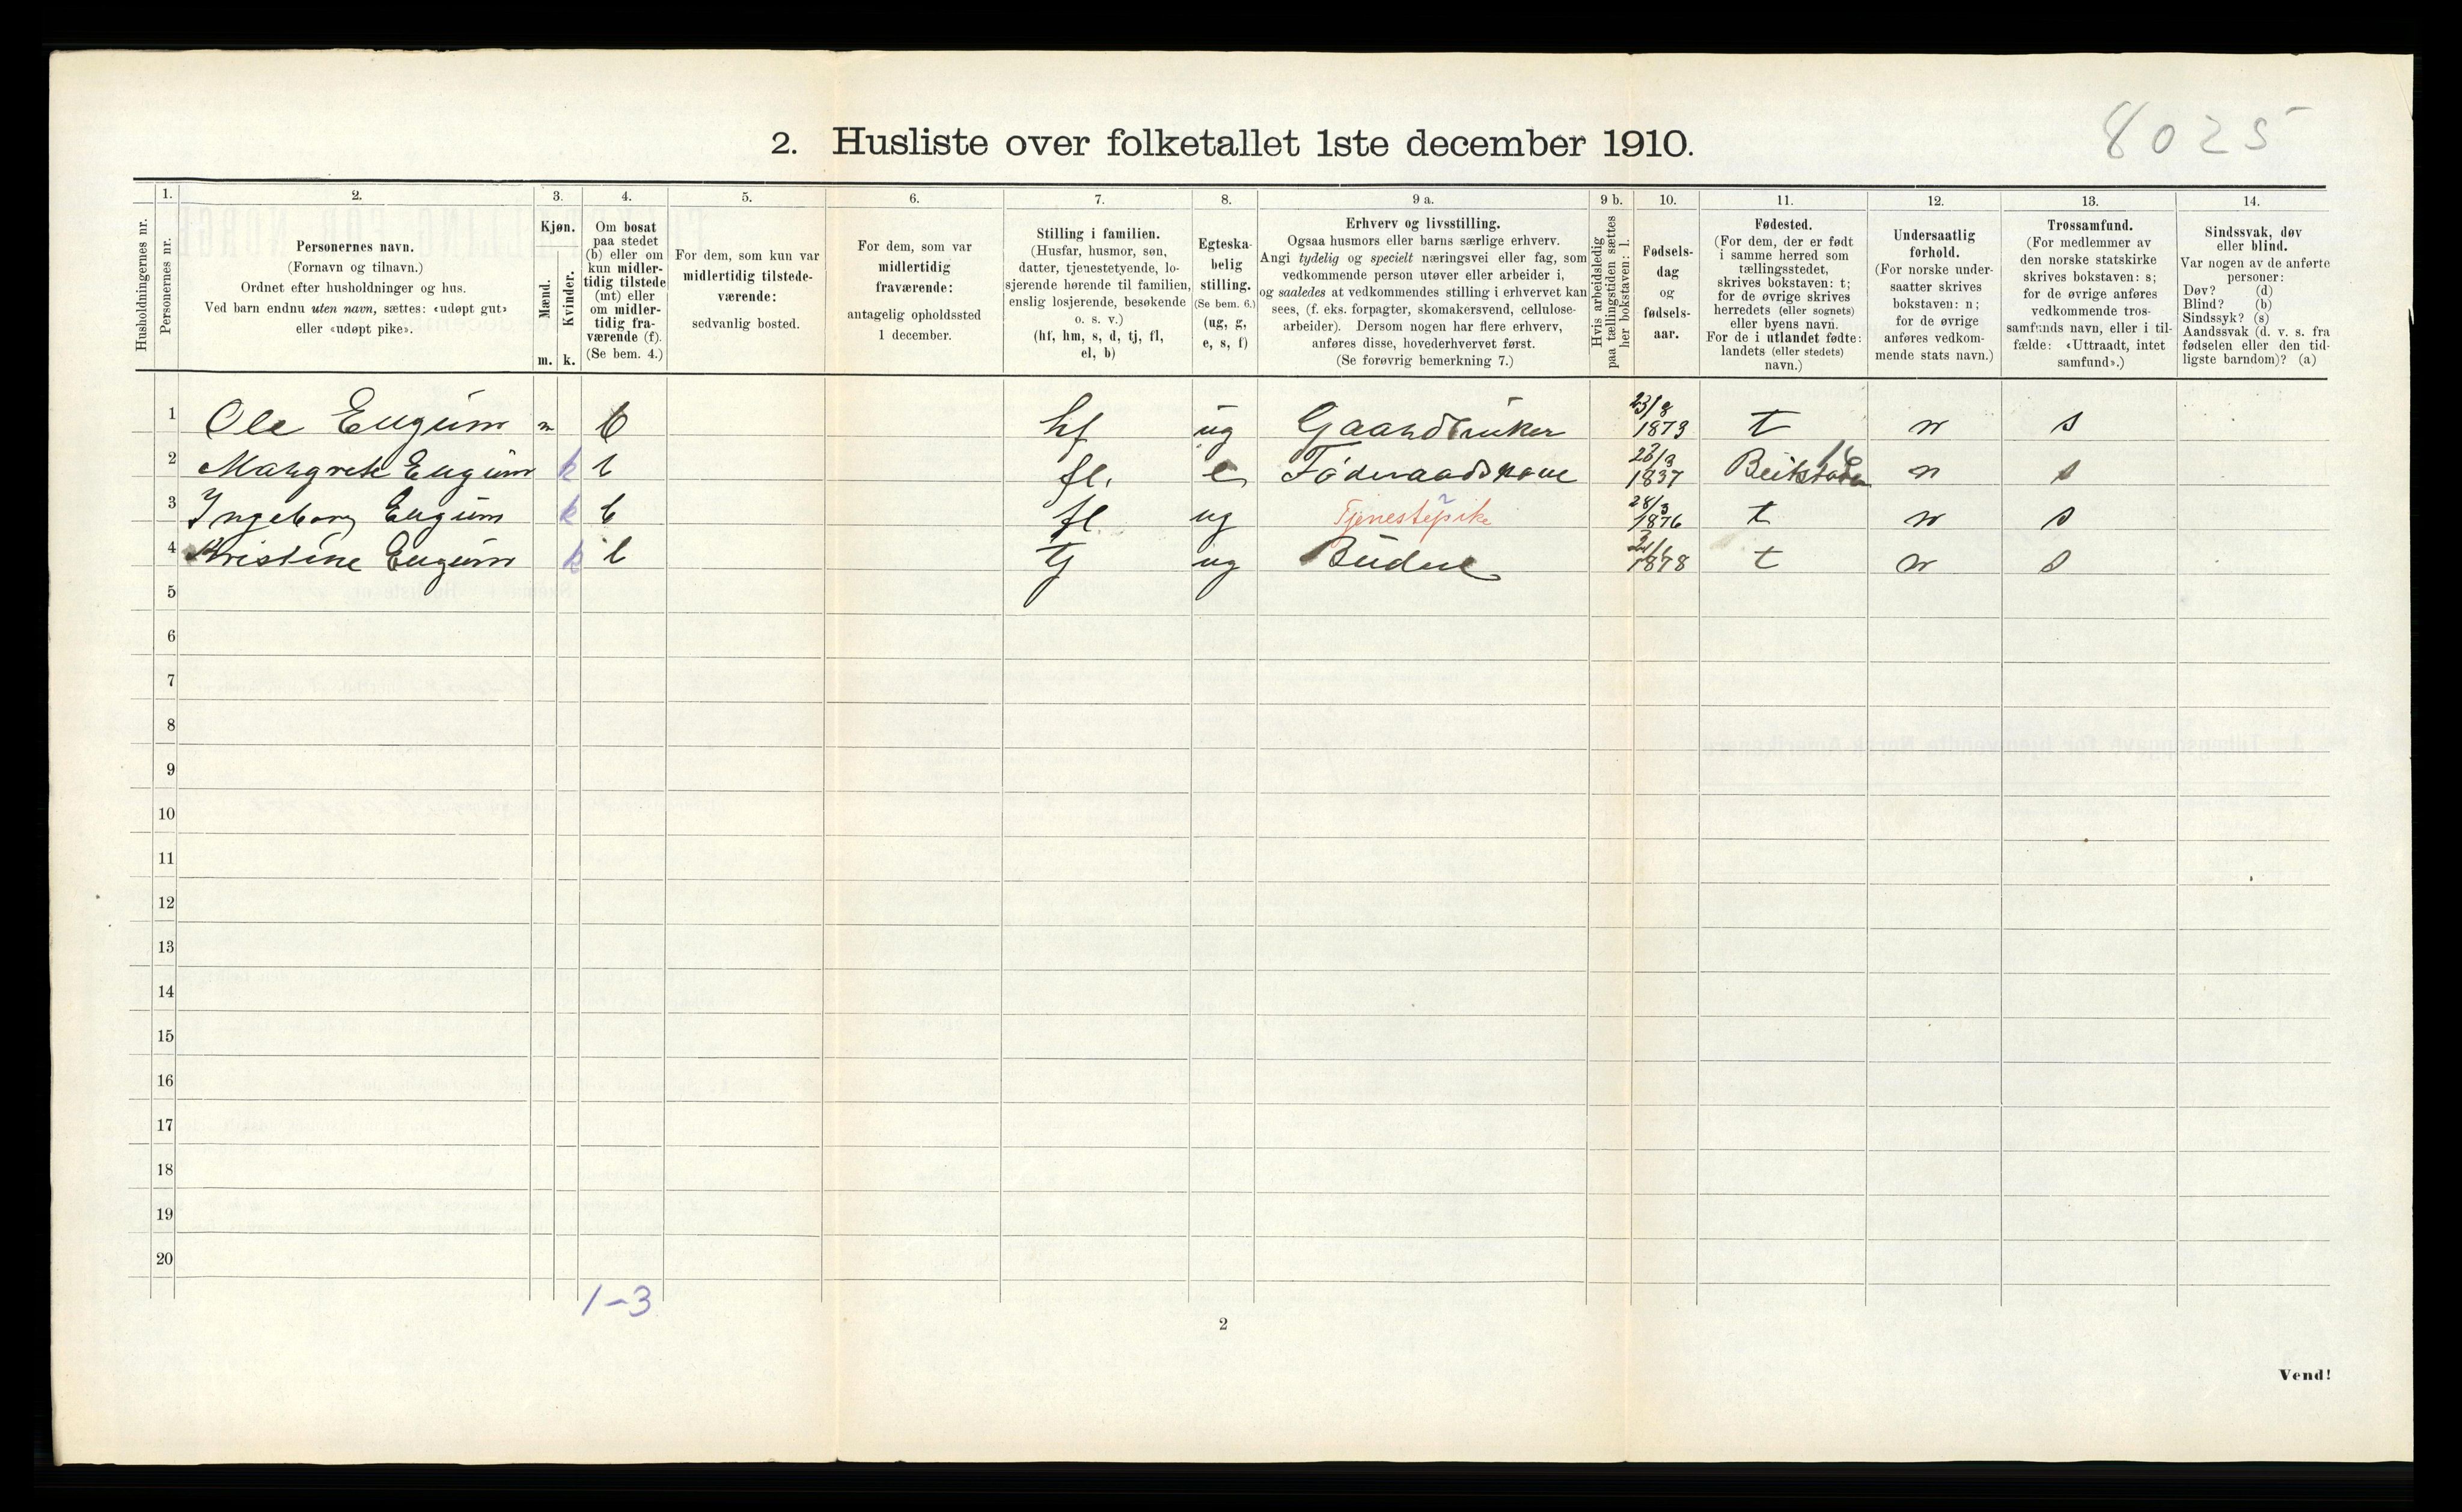 8025
2. Husliste over folketallet 1ste december 1910.
Husholdningernes nr.
1.
Personernes nr.
2.
Personernes navn.
(Fornavn og tilnavn.)
Ordnet efter husholdninger og hus.
Ved barn endnu uten navn, sættes: «udøpt gut»
eller «udøpt pike».
3.
Kjøn.
Mænd.
Kvinder.
m. k.
4.
Om bosat
paa stedet
(b) eller om
kun midler-
tidig tilstede
(mt) eller
om midler-
tidig fra-
værende (f).
(Se bem. 4.)
5.
For dem, som kun var
midlertidig tilstede-
værende:
sedvanlig bosted.
6.
For dem, som var
midlertidig
fraværende:
antagelig opholdssted
1 december.
7.
Stilling i familien.
(Husfar, husmor, søn,
datter, tjenestetyende, lo-
sjerende hørende til familien,
enslig losjerende, besøkende
o. s. v.)
(hf, hm, s, d, tj, fl,
el, b)
8.
Egteska-
belig
stilling.
(Se bem. 6.)
(ug, g,
e, s, f)
9 a.
Erhverv og livsstilling.
Ogsaa husmors eller barns særlige erhverv.
Angi tydelig og specielt næringsvei eller fag, som
vedkommende person utøver eller arbeider i,
og saaledes at vedkommendes stilling i erhvervet kan
sees, (f. eks. forpagter, skomakersvend, cellulose-
arbeider). Dersom nogen har flere erhverv,
anføres disse, hovederhvervet først.
(Se forøvrig bemerkning 7.)
9 b.
Hvis arbeidsledig
paa tællingstiden sættes
her bokstaven: l.
10.
Fødsels-
dag
og
fødsels-
aar.
11.
Fødested.
(For dem, der er født
i samme herred som
tællingsstedet,
skrives bokstaven: t;
for de øvrige skrives
herredets (eller sognets)
eller byens navn.
For de i utlandet fødte:
landets (eller stedets)
navn.)
12.
Undersaatlig
forhold.
(For norske under-
saatter skrives
bokstaven: n;
for de øvrige
anføres vedkom-
mende stats navn.)
13.
Trossamfund.
(For medlemmer av
den norske statskirke
skrives bokstaven: s;
for de øvrige anføres
vedkommende tros-
samfunds navn, eller i til-
fælde: «Uttraadt, intet
samfund».)
14.
Sindssvak, døv
eller blind.
Var nogen av de anførte
personer:
Døv? (d)
Blind? (b)
Sindssyk? (s)
Aandssvak (d. v. s. fra
fødselen eller den tid-
ligste barndom)? (a)
1 Ole Eugium m b hf ug Gaardbruker 23/8 1873 t n s
2 Margrete Eugium k b fl. e Føderaadskone 1837 Beitstaden n s
3 Ingeborg Eugium k b fl ug Tjenestepike 28/3 1876 t n s
4 Kristine Eugium k b tj ug Budeie 1878 t n s
5
6
7
8
9
10
11
12
13
14
15
16
17
18
19
20
1-3
2
Vend!